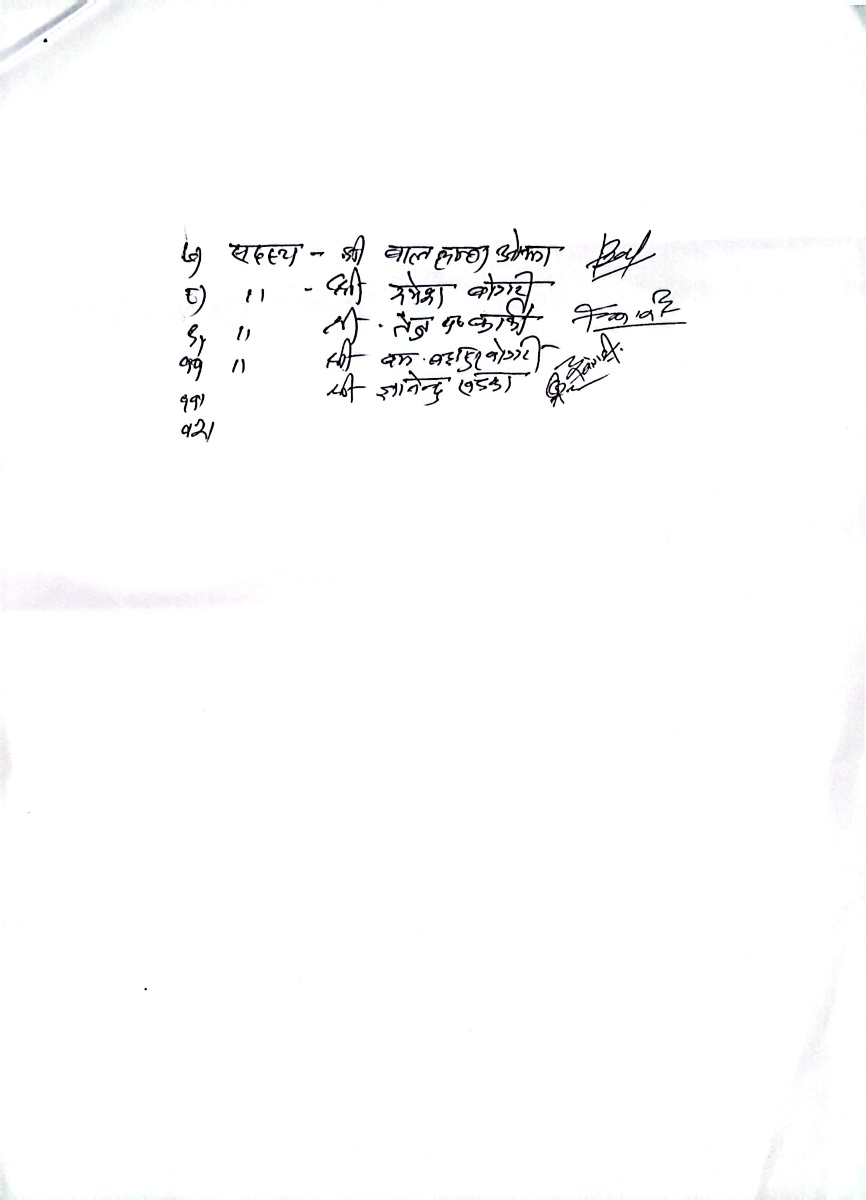 ७) सदस्य - श्री बाल कृष्ण ओझा
८) " - श्री रमेश बोगटी
९, " श्री. तेज ब. कार्की
११ " श्री बम. बहादुर बोगटी
११। श्री ज्ञानेन्द्र खडका
१२।